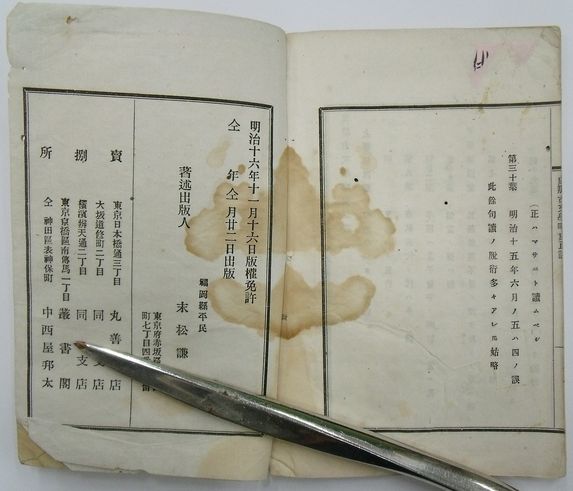 (正ハマサニト讀ムベシ
第三十葉 明治十五年六月ノ五ハ四ノ誤
此餘句讀ノ脫畧多々アレ𪜈姑略
明治十六年十一月十六日版權免許
仝 年仝月廿二日出版
著述出版人
福岡縣平民
末松謙
東京府赤坂
町七丁目四
賣
捌
所
東京日本橋通三丁目 丸善 店
大坂道修町二丁目 同 支店
橫濱辨天通二丁目 同 支店
東京京橋區南傳馬一丁目 叢書閣
仝 神田區表神保町 中西屋邦太